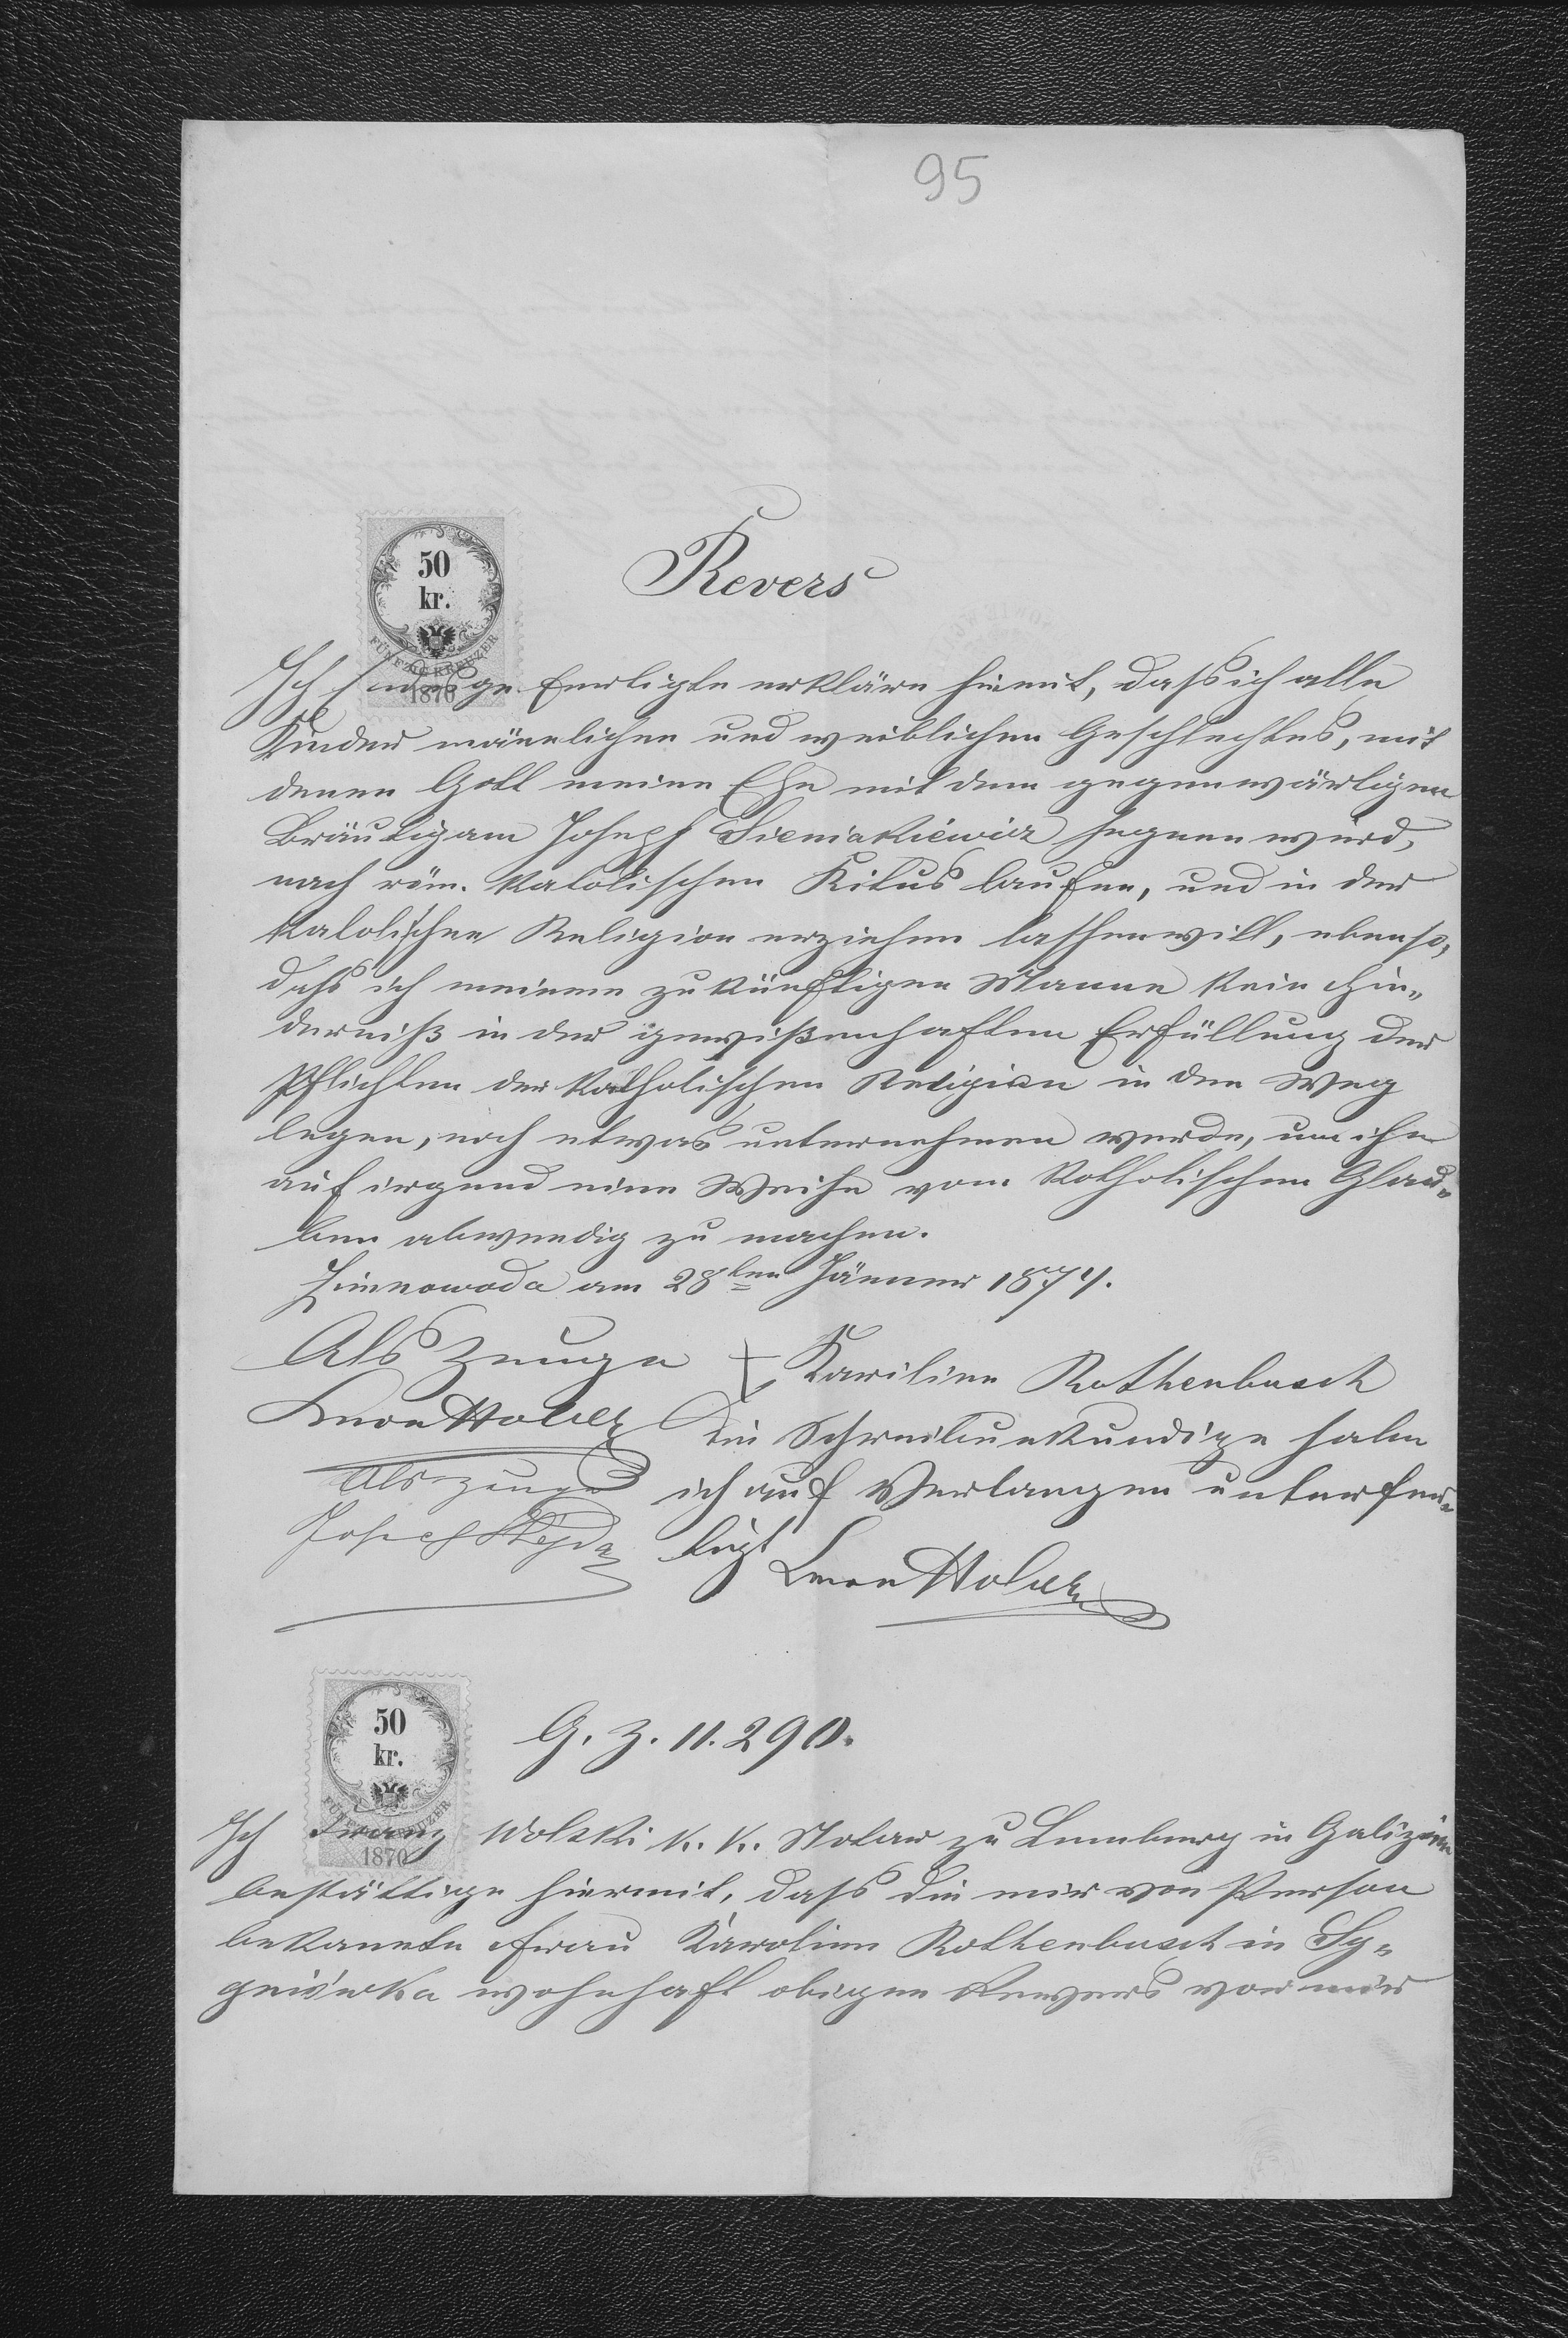 95
50
kr.
FÜNFZIG KREUZER
1870
Revers
Ich Endesgefertigte erkläre hiemit, daß ich alle
Kinder mänlichen und weiblichen Geschlechtes, mit
denen Gott meine Ehe mit dem gegenwärtigen
Bräutigam Joseph Sieniakiewicz segnen wird,
nach röm. katolischen Ritus taufen, und in der
katolischen Religion erziehen lassen will, ebenso,
daß ich meinem zukünftigen Manne kein Hin„
derniß in der gewißenhaften Erfüllung der
Pflichten der katholischen Religion in den Weg
legen, noch etwas unternehmen werde, um ihn
auf irgend eine Weise vom katholischen Glau„
ben abwendig zu machen.
Zimnowoda am 28ten Jänner 1874.
Als Zeuge + Karoline Rothenbusch
Leon
Die Schreibunkundige habe
Als Zeuge
ich auf Verlangen unterfer„
Josef
tigt
Leon
50
kr.
FÜNFZIG KREUZER
1870
G. Z. 11.290.
Ich Franz Wolski k. k. Notar zu Lemberg in Galizien
bestättige hiermit, daß die mir von Person
bekannte Frau Karoline Rothenbusch in Sy„
gniówka wohnhaft obigen Revers vor mir